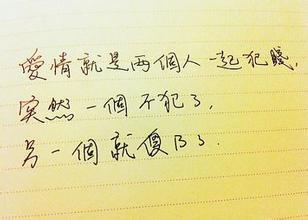 愛情就是兩個人一起犯賤，
突然一個不犯了，
另一個就傻B了．